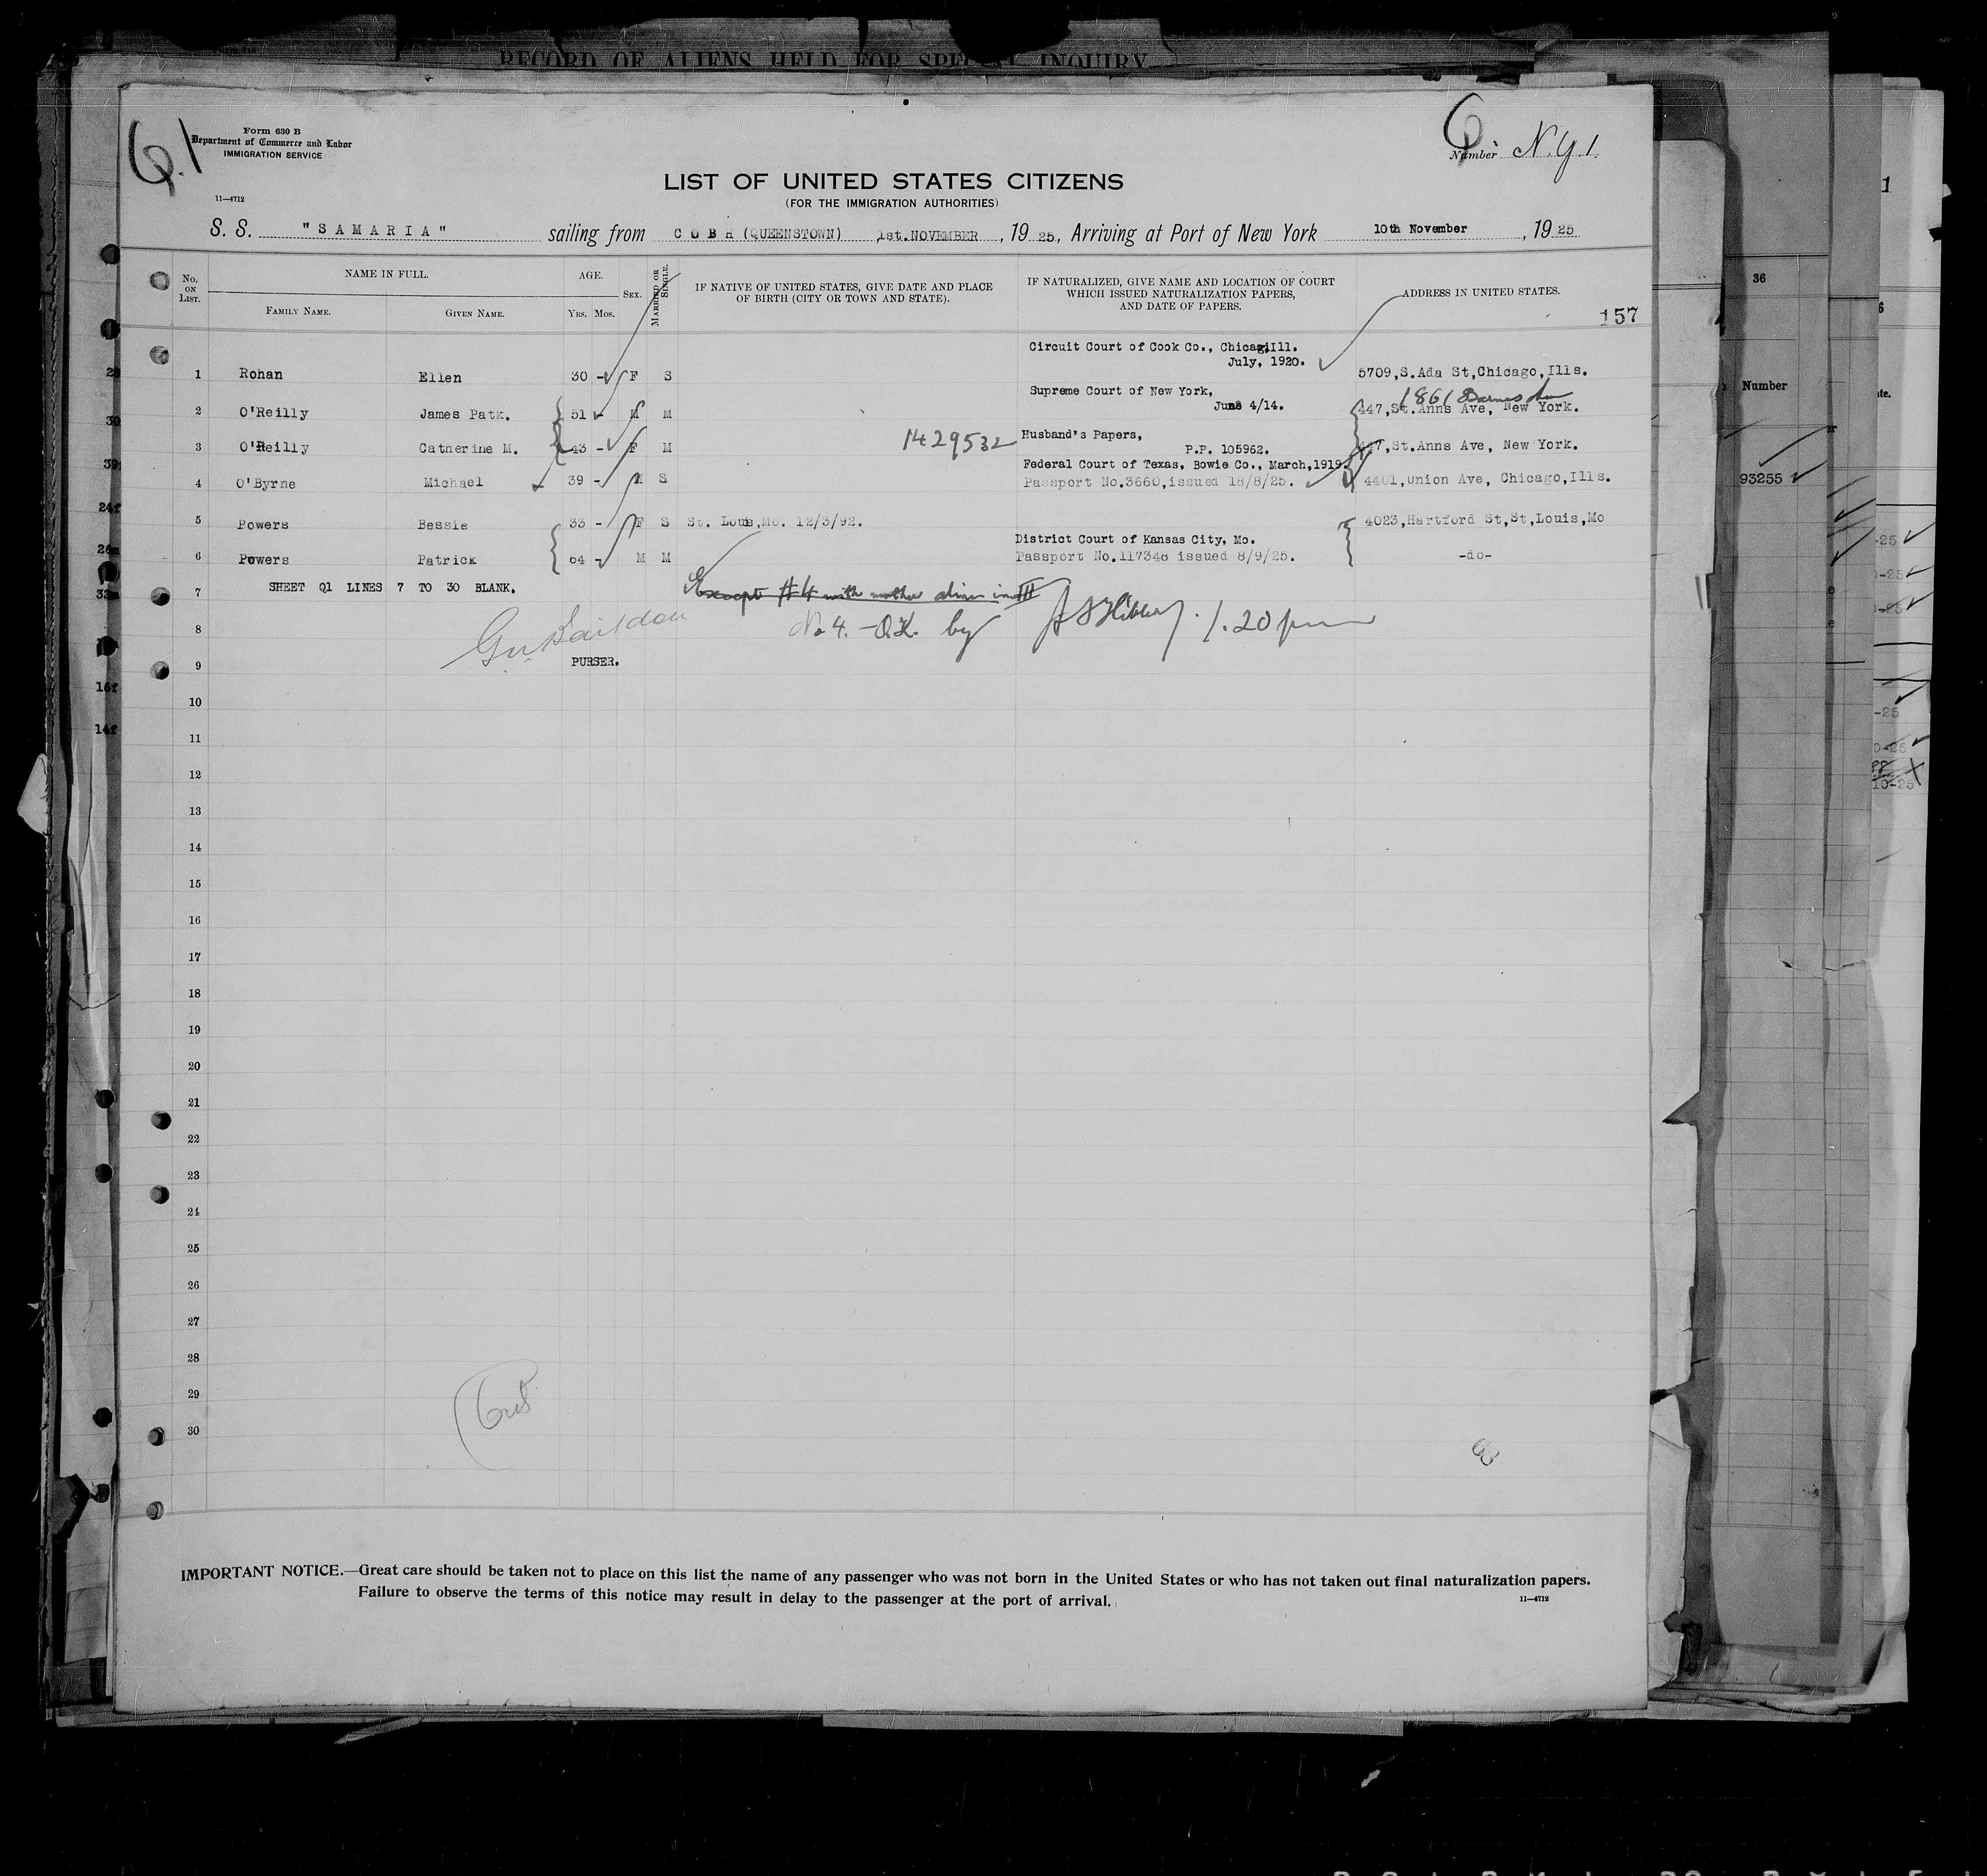 RECORD OF ALIENS HELD FOR SPECIAL INQUIRY
Q.1
Form 630 B
Department of Commerce and Labor
IMMIGRATION SERVICE
11—4712
Number N.Y.1.
LIST OF UNITED STATES CITIZENS
(FOR THE IMMIGRATION AUTHORITIES)
S. S. "SAMARIA" sailing from COBH (QUEENSTOWN) 1st. NOVEMBER, 1925, Arriving at Port of New York 10th November, 1925
No. ON LIST. NAME IN FULL. FAMILY NAME. GIVEN NAME. AGE. YRS. MOS. SEX. MARRIED OR SINGLE. IF NATIVE OF UNITED STATES, GIVE DATE AND PLACE OF BIRTH (CITY OR TOWN AND STATE). IF NATURALIZED, GIVE NAME AND LOCATION OF COURT WHICH ISSUED NATURALIZATION PAPERS, AND DATE OF PAPERS. ADDRESS IN UNITED STATES.
157
Circuit Court of Cook Co., Chicag,Ill.
July, 1920.
1 Rohan Ellen 30 - F S 5709,S.Ada St,Chicago,Ills.
Supreme Court of New York,
1861 Barnes Ave
2 O'Reilly James Patk. 51 - M M June 4/14. 447,St.Anns Ave, New York.
1429532 Husband's Papers,
3 O'Reilly Catherine M. 43 - F M P.P. 105962. 447,St.Anns Ave, New York.
Federal Court of Texas, Bowie Co., March,1919.
4 O'Byrne Michael 39 - M S Passport No.3660,issued 18/8/25. 4401,Union Ave, Chicago,Ills.
5 Powers Bessie 33 - F S St. Louis,Mo. 12/3/92. 4023,Hartford St,St,Louis,Mo
District Court of Kansas City, Mo.
6 Powers Patrick 64 - M M Passport No.117348 issued 8/9/25. -do-
7 SHEET Q1 LINES 7 TO 30 BLANK. Except #4 with mother alien in III
8 No 4. - O.K. by 1.20 pm
9 PURSER.
10
11
12
13
14
15
16
17
18
19
20
21
22
23
24
25
26
27
28
29
30
68
IMPORTANT NOTICE.—Great care should be taken not to place on this list the name of any passenger who was not born in the United States or who has not taken out final naturalization papers.
Failure to observe the terms of this notice may result in delay to the passenger at the port of arrival.
11—4712
36
Number
93255